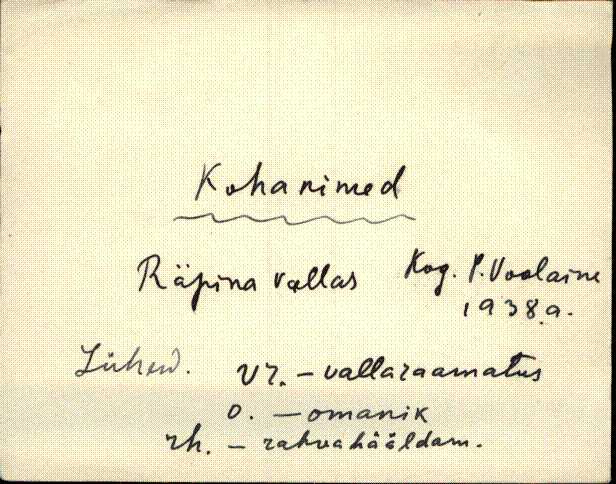 Kohanimed
Räpina vallas Kog. P. Voolaine
1938.a.
Lühend. vr. – vallaraamatus
o. – omanik
rh. – rahvahääldam.